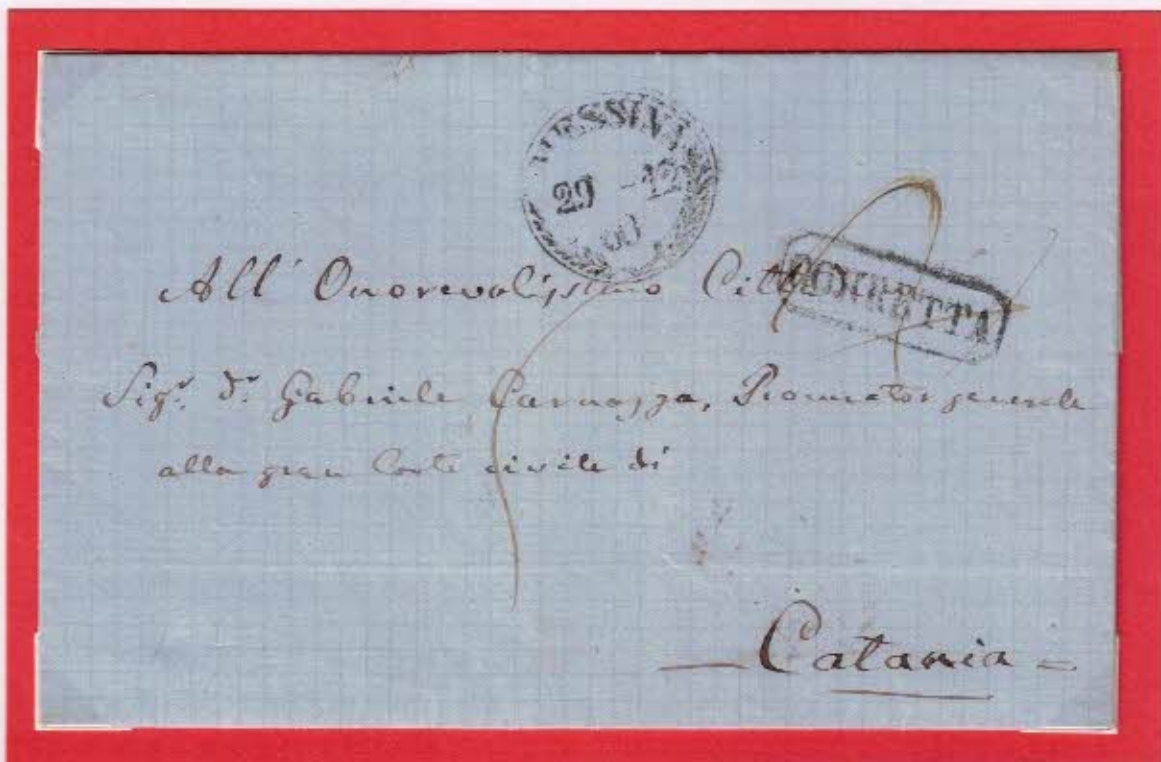 MESSINA
29 - 12
60
CORRETTA
All' Onorevolissimo Citt
Sigr. Dr. Gabriele Carnazza, Procurator generale
alla gran Corte civile di
Catania